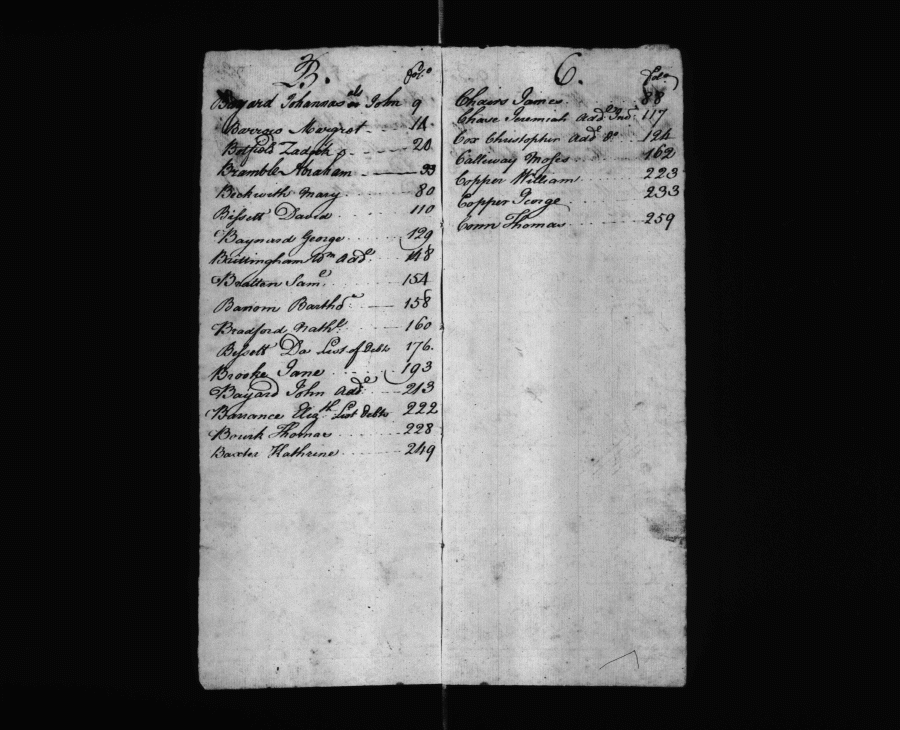 B.
Fol.o
Bayard Johannas als or John 9
Barrow Margret 14
Botfield Zadock 20
Bramble Abraham 33
Beckwith Mary 80
Bissett David 110
Baynard George 129
Brittingham Wm Add. 148
Bratten Saml. 154
Banom Barthow. 158
Bradford Nathl. 160
Bissett Da List of Debts 176.
Brooke Jane 193
Bayard John Add. 213
Barrance Elizth List Debts 222
Bourk Thomas 228
Baxter Kathrine 249
C.
Folo
Chairs James 88
Chase Jeremiah Add. Ind. 117
Cox Christopher Add. 124
Calliway Moses 162
Copper William 223
Copper George 233
Conn Thomas 259